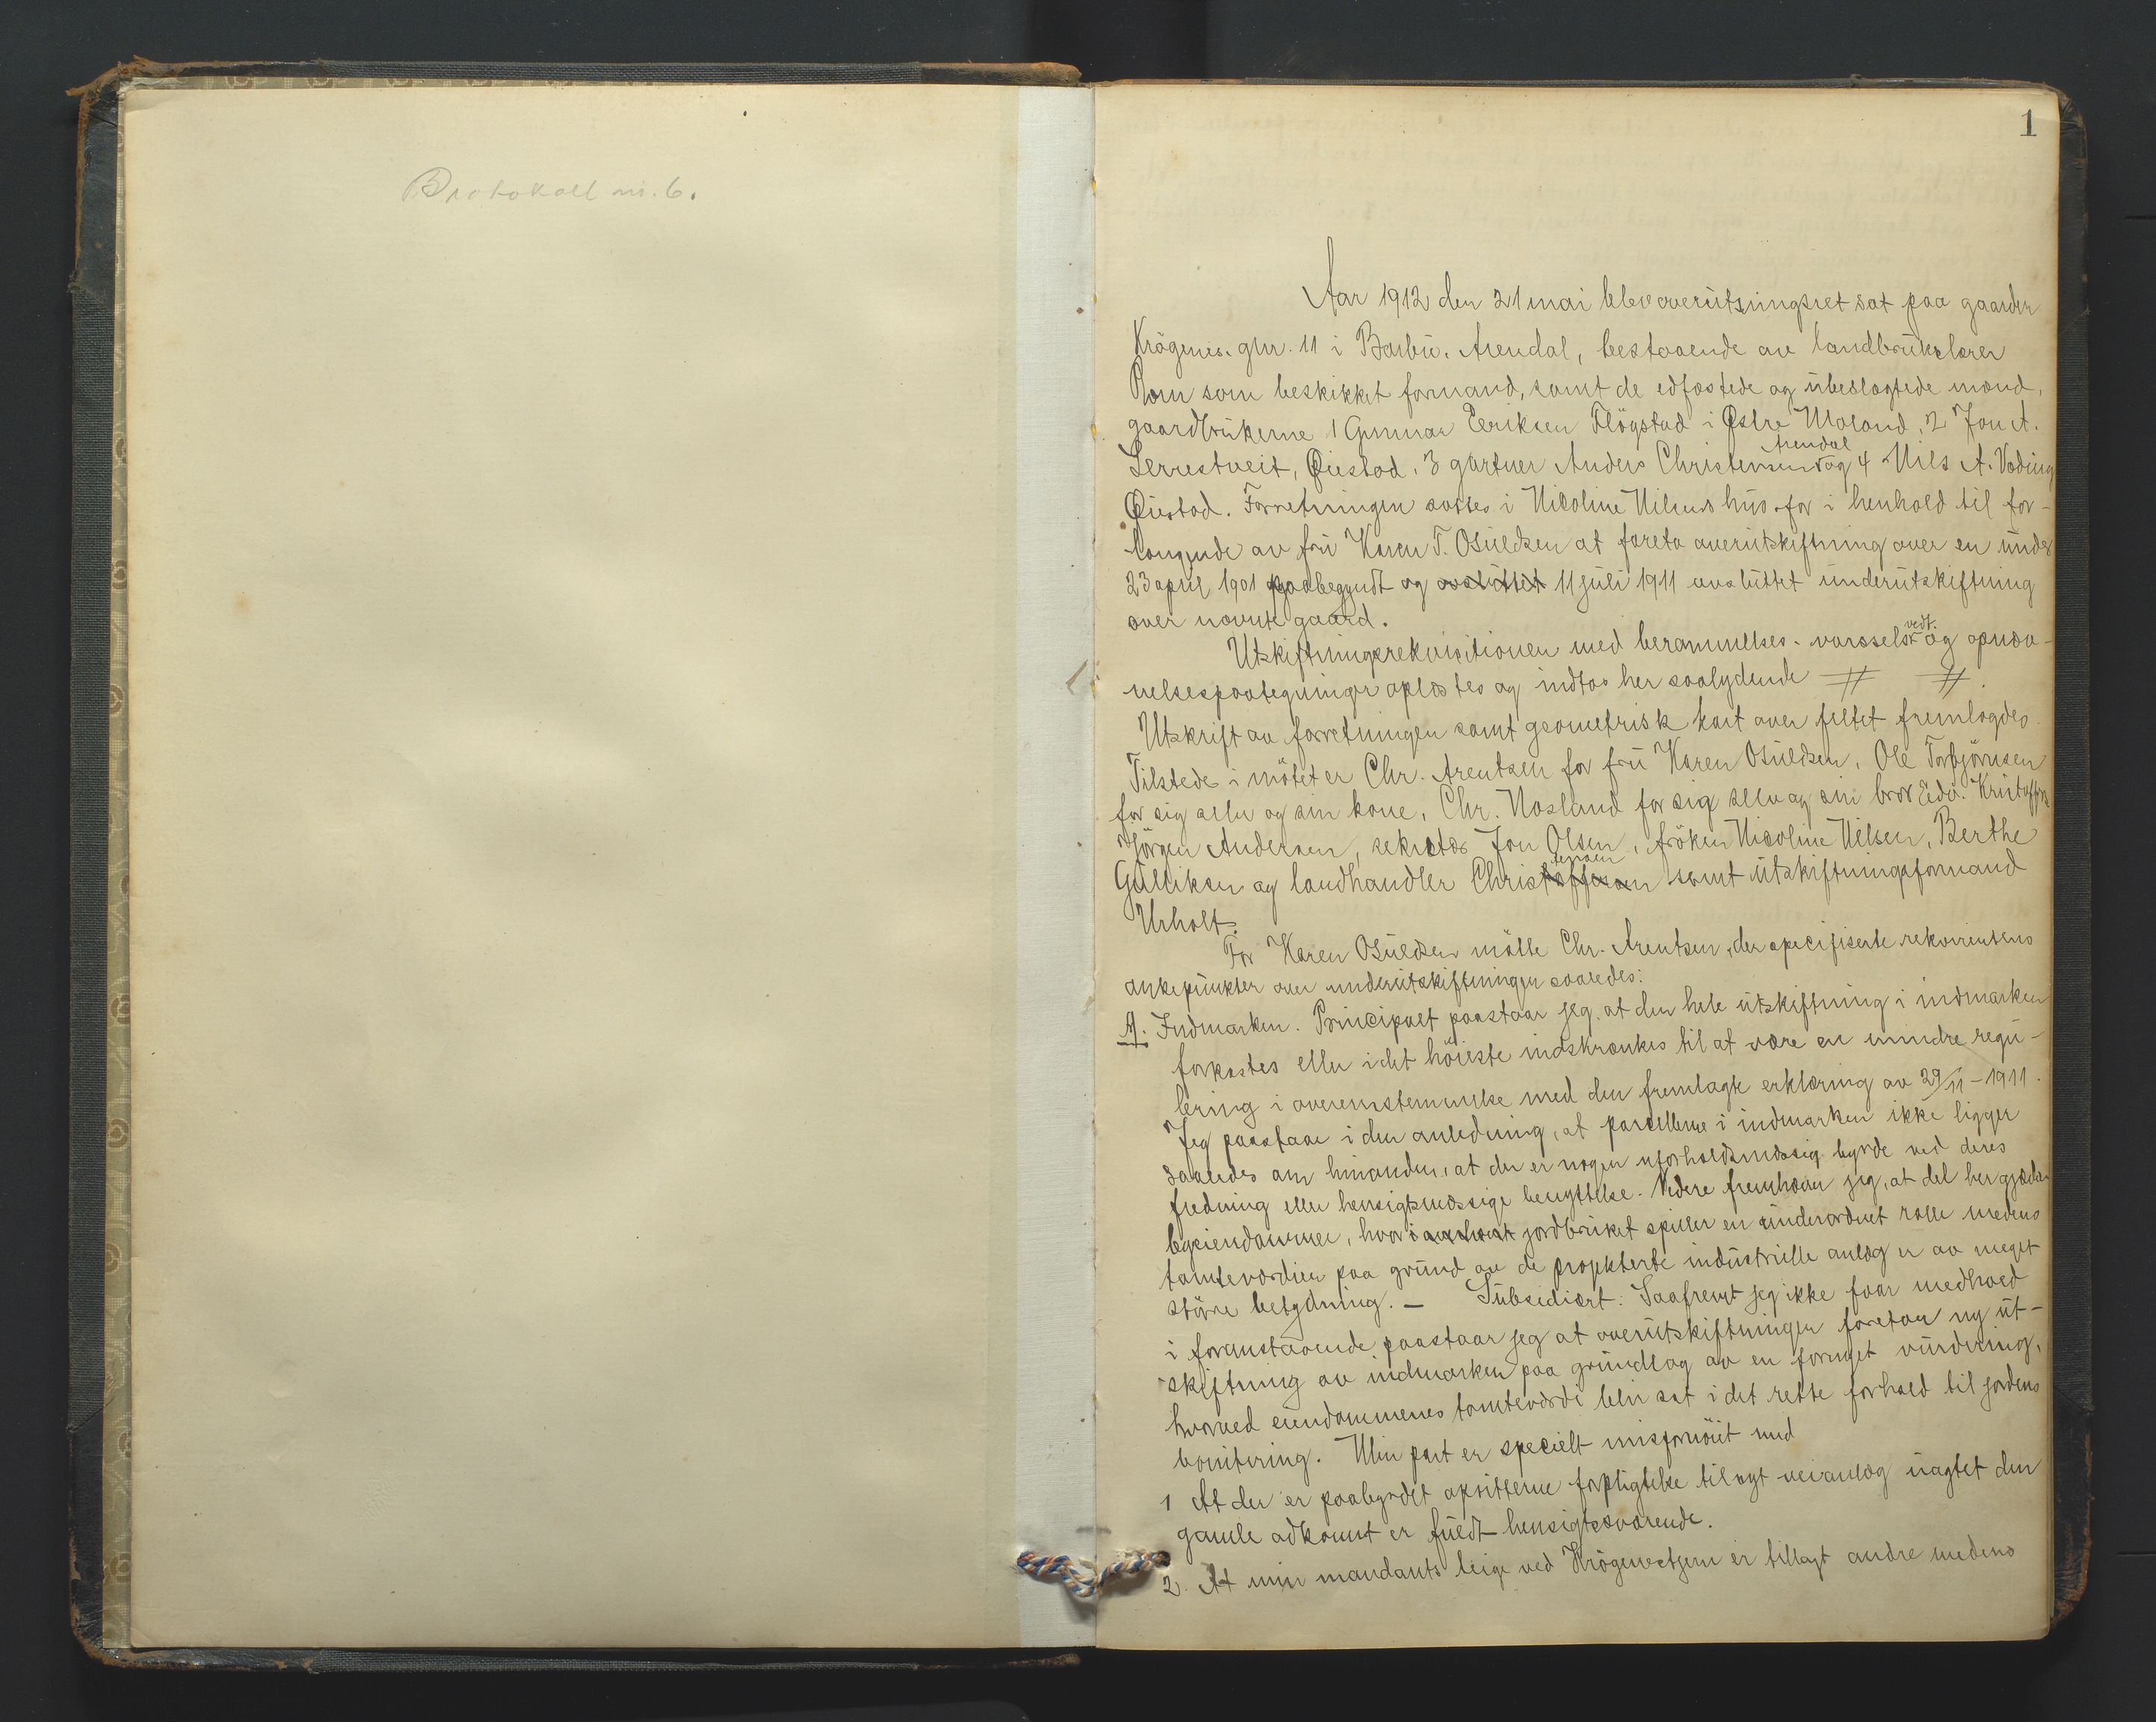 Protokoll nr. 6.
1
Aar 1912 den 21 mai blev overutskiftningsret sat paa gaarden
Krögenes gnr. 11 i Barbu, Arendal, bestaaende av landbrukslærer
som beskikket formand, samt de edfæstede og ubeslægtede mænd,
gaardbrukerne 1 Gunnar Eriksen Flögstad i Østre Moland, 2 Jon A.
Lerrestveit, Øiestad, 3 gartner Anders Christensen Arendal og 4 Nils A. Vøding
Øiestad. Forretningen sattes i Nicoline Nilsens hus for i henhold til for-
langende av fru Karen T. Osuldsen at foreta overutskiftning over en under
23 april 1901 paabegyndt og avsluttet 11 juli 1911 avsluttet underutskiftning
over nævnte gaard.
Utskiftningsrekvisitionen med berammelses- varsels- vedt. og opnæv-
nelsespaategninger oplæstes og indtas her saalydende # #
Utskrift av forretningen samt geometrisk kart over feltet fremlagdes.
Tilstede i mötet er Chr. Arentsen for fru Karen Osuldsen, Ole Torbjörnsen
for sig selv og sin kone, Chr. Nosland for sig selv og sin bror Edv. Kristoffers.
Jörgen Andersen, sekretær Jon Olsen, fröken Nicoline Nilsen, Berthe
Gulliksen og landhandler Christoffersen tensen samt utskiftningsformand
Urholt.
For Karen Osuldsen mötte Chr. Arentsen, der specifiserte rekvirentens
ankepunkter over underutskiftningen saaledes:
A. Indmarken. Principalt paastaar jeg, at den hele utskiftning i indmarken
forkastes eller i det höieste indskrænkes til at være en mindre regu-
lering i overensstemmelse med den fremlagte erklæring av 29/11 - 1911.
Jeg paastaar i den anledning, at parcellerne i indmarken ikke ligger
saaledes om hinanden, at der er nogen uforholdsmæssig byrde ved deres
fredning eller hensigtsmæssige benyttelse. Videre fremhæver jeg, at det her gjælder
byeiendommer, hvor jordbruket spiller en underordnet rolle medens
tomteværdien paa grund av de projekterte industrielle anlæg er av meget
större betydning. - Subsidiært: Saafremt jeg ikke faar medhold
i foranstaaende paastaar jeg at overutskiftningen foretar ny ut-
skiftning av indmarken paa grundlag av en fornyet vurdering,
hvorved eiendommenes tomteværdi blir sat i det rette forhold til jordens
bonitering. Min part er specielt misfornöiet med
1 At der er paabyrdet opsitterne forpligtelse til nyt veianlæg uagtet den
gamle adkomst er fuldt hensigtssvarende.
2. At min mandants leige ved Krögenestjern er tillagt andre medens